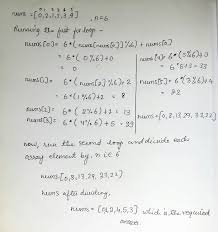 0 1 2 3 4 5
nums = [0,2,1,5,3,4] , n=6
Running the first for loop -
nums[0] = 6*(nums[nums[0]]%6) + nums[0]
= 6*(0%6)+0
= 0
nums[1] = 6*(nums[2]%6)+2
= 6*(1%6)+2 = 8
nums[2] = 6*(2%6)+1 = 13
nums[3] = 6*(4%6)+5 = 29
nums[4] = 6*(5%6)+3
= 6*5+3 = 33
nums[5] = 6*(3%6)+4
= 22
nums[0,8,13,29,33,22]
Now, run the second loop and divide each
array element by, n i.e 6
nums[0,8,13,29,33,22]
nums after dividing,
nums = [0,1,2,4,5,3] which is the required
answer.